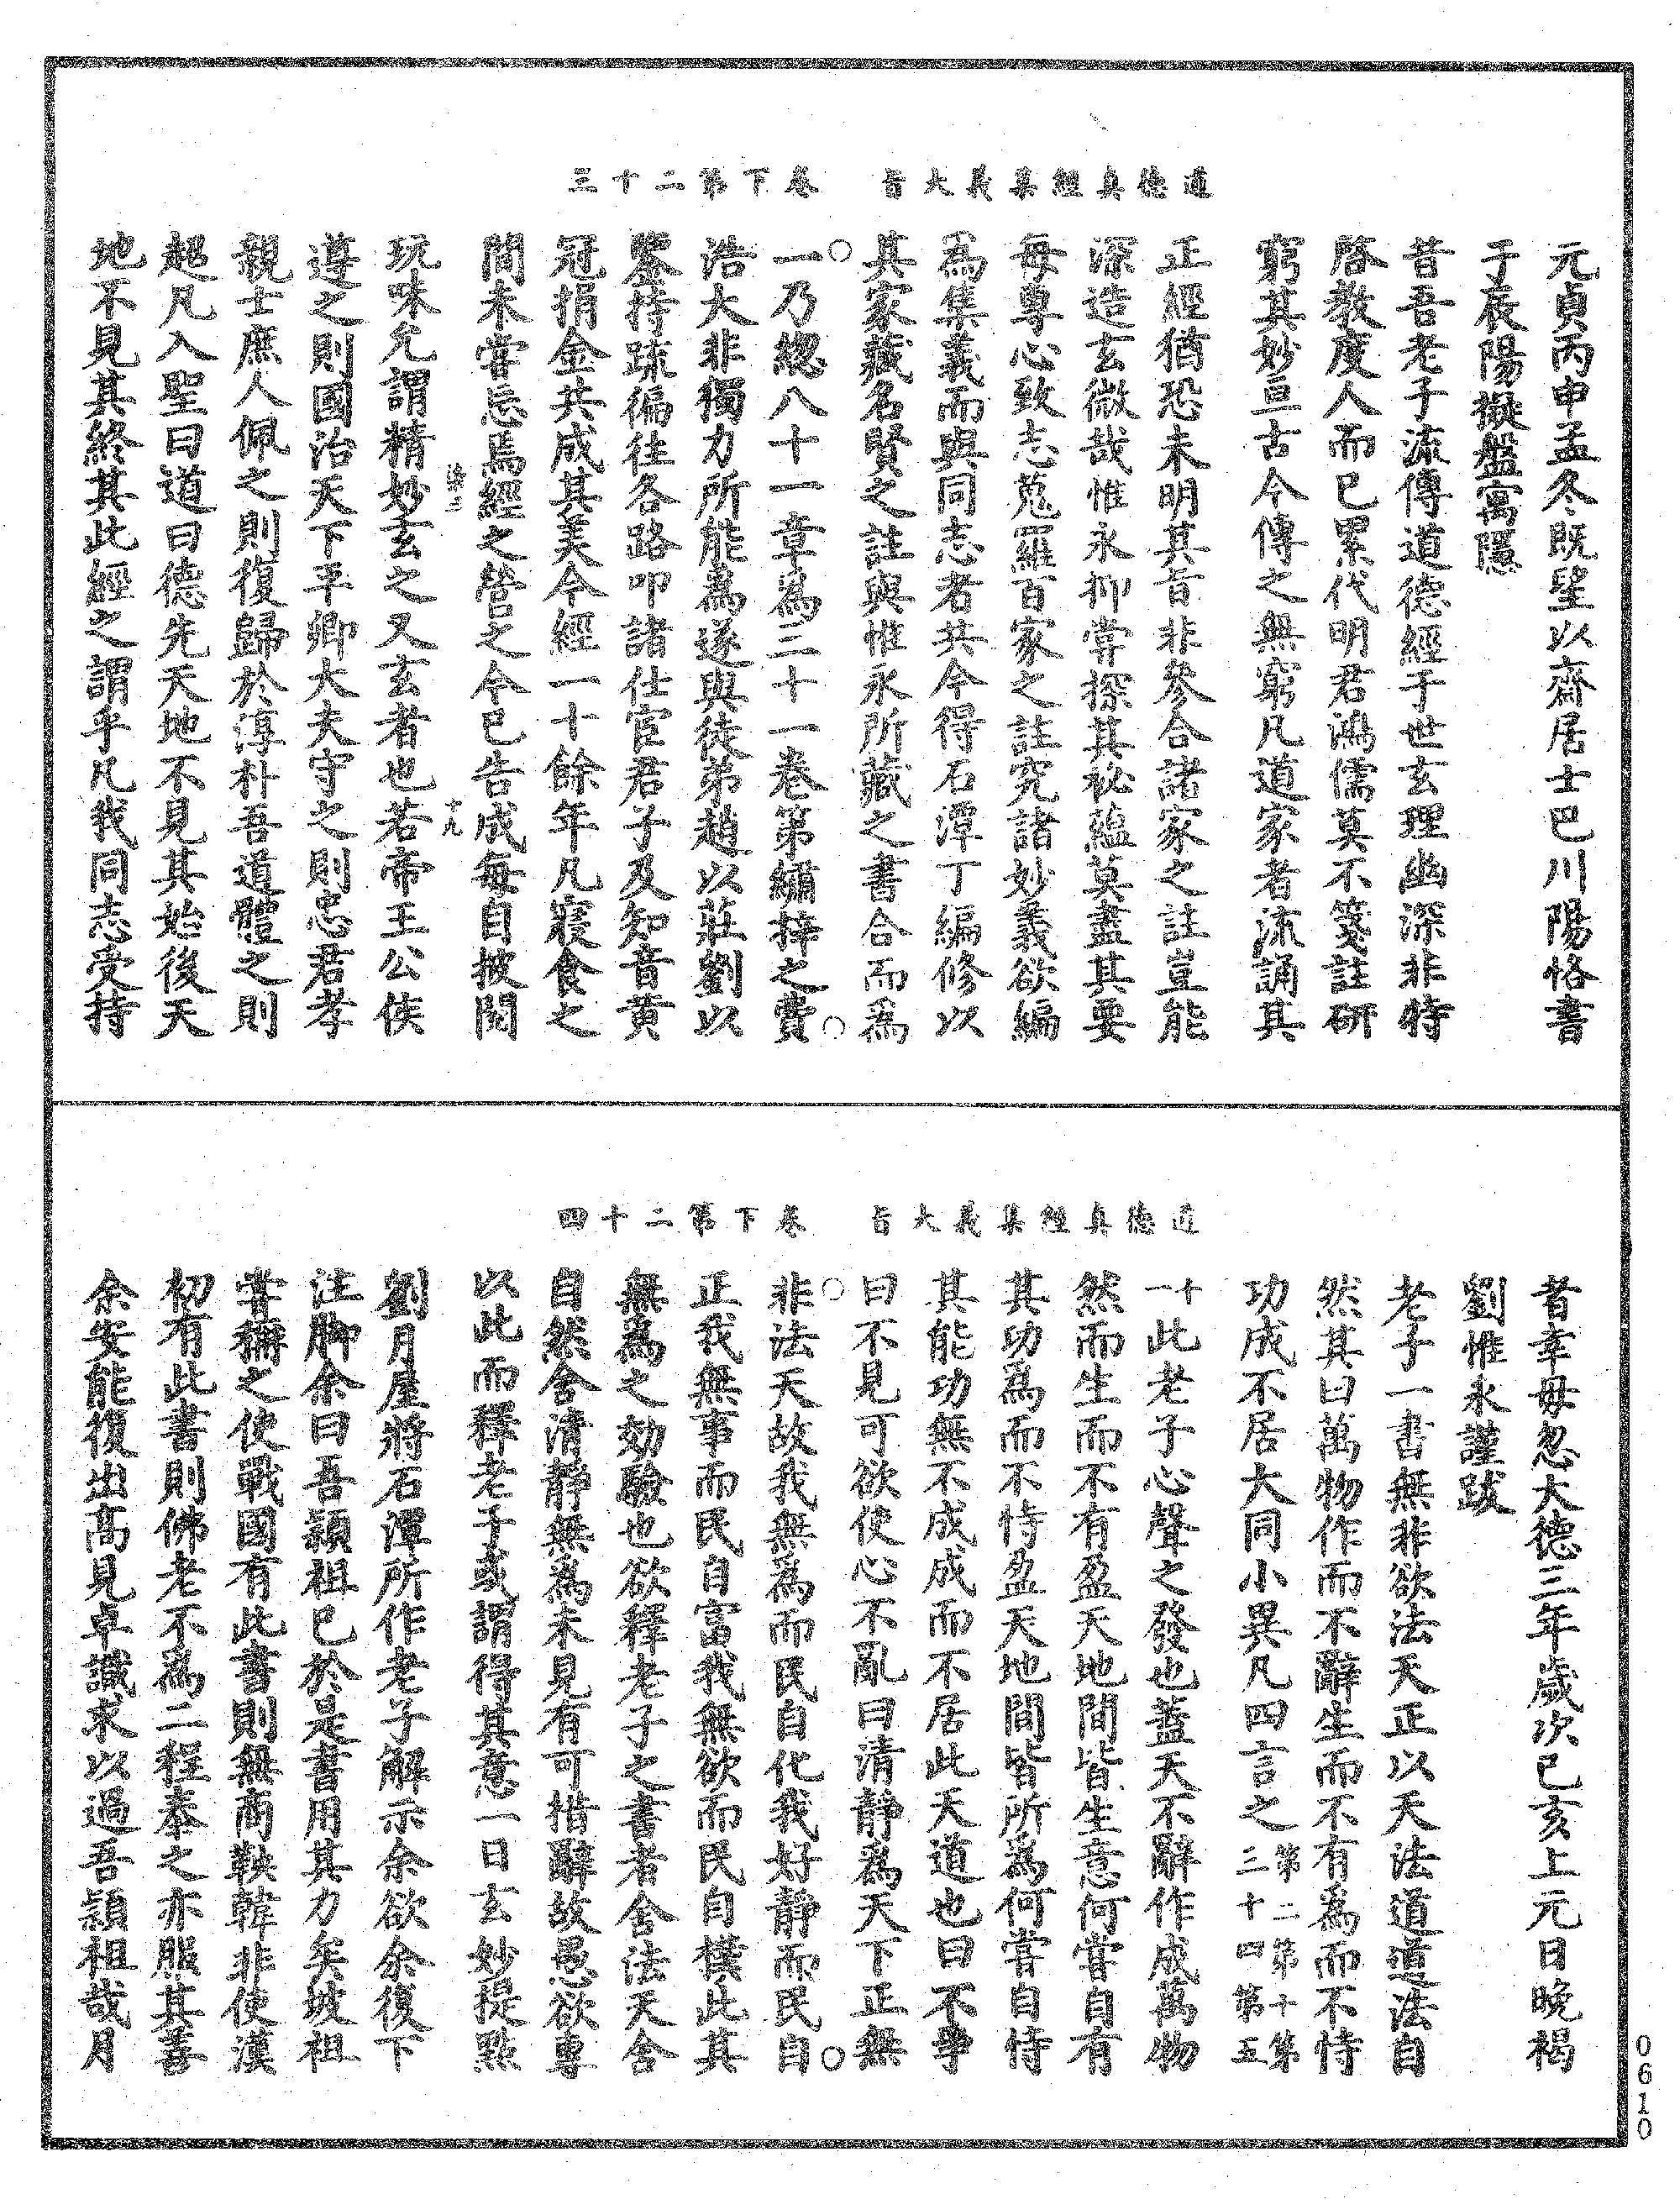 道德真經集義大旨　卷下第二十三
元貞丙申孟冬既望以齋居士巴川陽恪書
于辰陽擬盤寓隱
昔吾老子流傳道德經于世玄理幽深非特
啓教度人而已累代明君鴻儒莫不箋註研
窮其妙亘古今傳之無窮凡道家者流誦其
正經猶恐未明其旨非參合諸家之註豈能
深造玄微哉惟永抑嘗探其祕蘊莫盡其要
每尊心致志蒐羅百家之註究諸妙義欲編
為集義而與同志者共今得石潭丁編修以
其家藏名賢之註與惟永所藏之書合而為
一乃總八十一章為三十一卷第繡梓之費
浩大非獨力所能為遂與徒弟趙以莊劉以
鑒持疏徧往各路叩諸仕宦君子及知音黄
冠捐金共成其美今經一十餘年凡寢食之
間未嘗忘焉經之營之今已告成每自披閱
十九
玩味允謂精妙玄之又玄者也若帝王公侯
遵之則國治天下平卿大夫守之則忠君孝
親士庶人佩之則復歸於淳朴吾道體之則
超凡入聖曰道曰德先天地不見其始後天
地不見其終其此經之謂乎凡我同志受持
道德真經集義大旨　卷下第二十四
者幸毋忽大德三年歲次己亥上元日晚褐
劉惟永謹跋
老子一書無非欲法天正以天法道道法自
然其曰萬物作而不辭生而不有為而不恃
功成不居大同小異凡四言之第二第十第三十四第五
十一此老子心聲之發也蓋天不辭作成萬物
然而生而不有盈天地間皆生意何嘗自有
其功為而不恃盈天地間皆所為何嘗自恃
其能功無不成成而不居此天道也曰不爭
曰不見可欲使心不亂曰清靜為天下正無
非法天故我無為而民自化我好靜而民自
正我無事而民自富我無欲而民自樸此其
無為之効驗也欲釋老子之書者舍法天舍
自然舍清靜無為未見有可措辭故愚欲專
以此而釋老子或謂得其意一日玄妙提點
劉月屋將石潭所作老子解示余欲余復下
注脚余曰吾潁祖已於是書用其力矣坡祖
嘗稱之使戰國有此書則無商鞅韓非使漢
初有此書則佛老不為二程泰之亦服其善
余安能復出高見卓識求以過吾潁祖哉月
0610